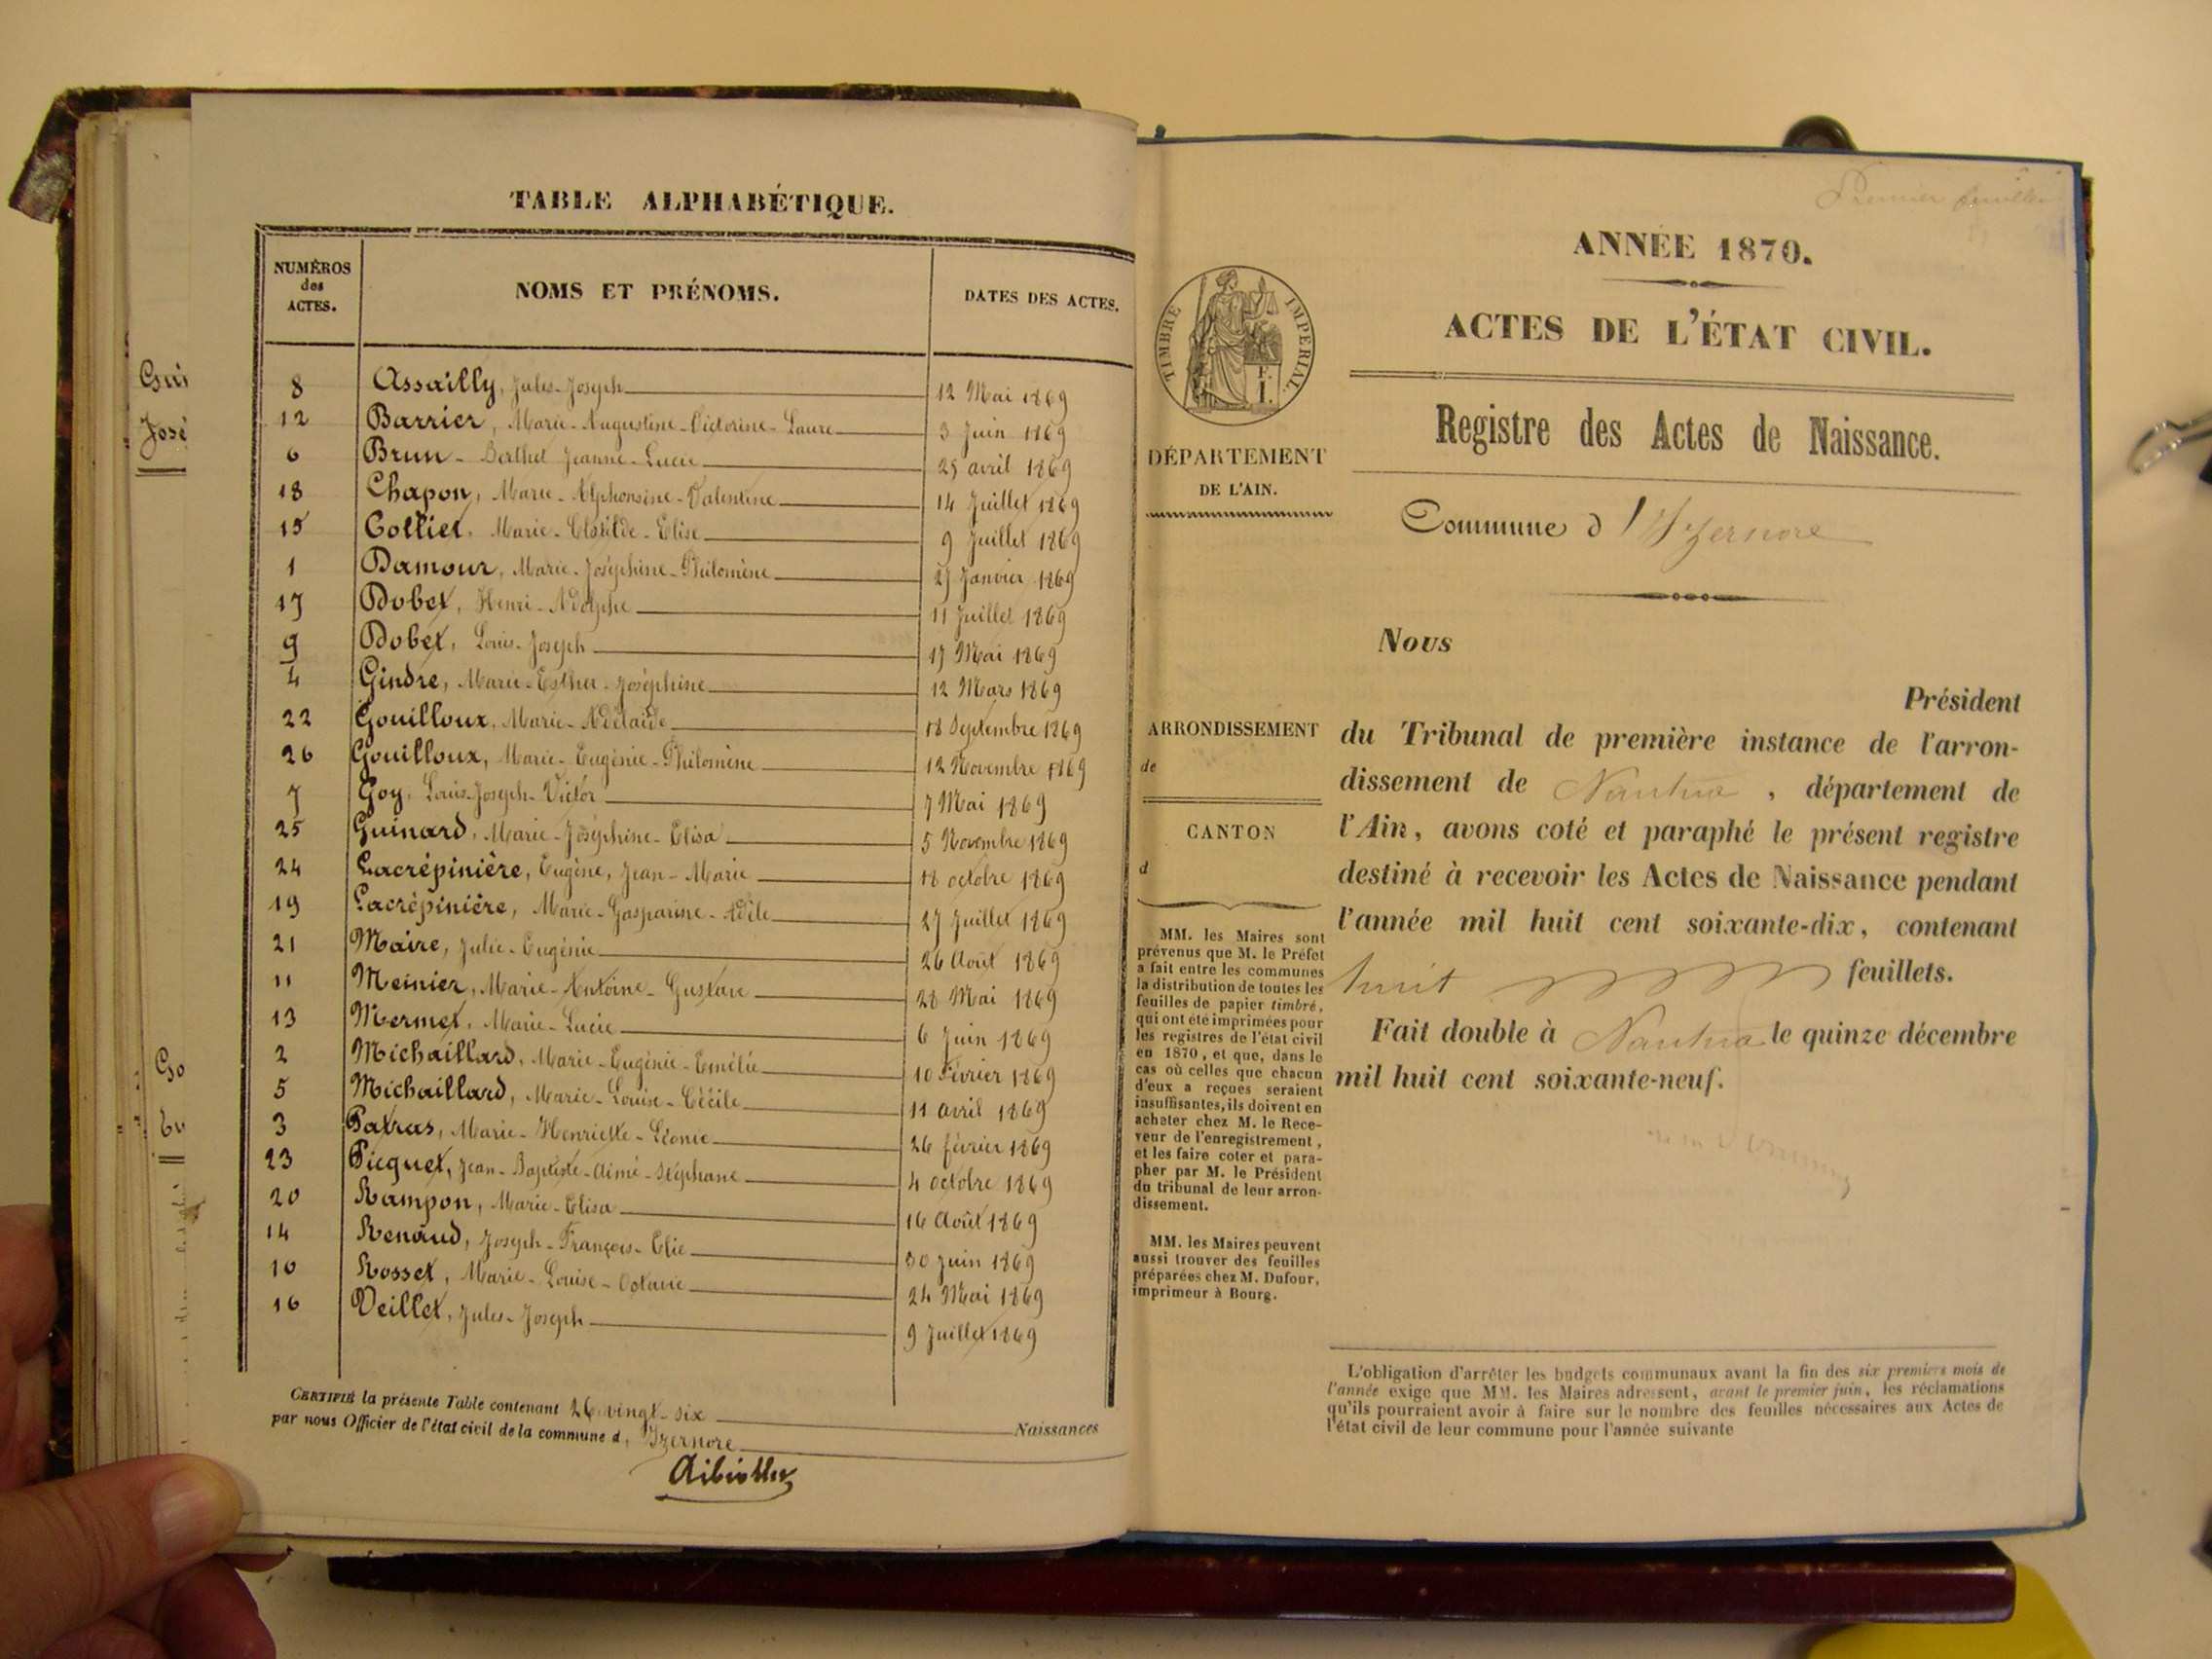 Gui
José
Go
TABLE ALPHABÉTIQUE.
NUMÉROS des ACTES. NOMS ET PRÉNOMS. DATES DES ACTES.
8 Assailly, Jules-Joseph 12 Mai 1869
12 Barrier, Marie-Augustine-Victorine-Laure 3 Juin 1869
6 Brun-Berthet Jeanne-Lucie 25 avril 1869
18 Chapon, Marie-Alphonsine-Valentine 14 Juillet 1869
15 Colliet, Marie-Clotilde-Elise 9 Juillet 1869
1 Damour, Marie-Joséphine-Philomène 27 Janvier 1869
17 Dobet, Henri-Adolphe 11 Juillet 1869
9 Dobet, Louis-Joseph 17 Mai 1869
4 Gindre, Marie-Esther-Joséphine 12 Mars 1869
22 Gouilloux, Marie-Adélaïde 18 Septembre 1869
26 Gouilloux, Marie-Eugénie-Philomène 12 Novembre 1869
7 Goy, Louis-Joseph-Victor 7 Mai 1869
25 Guinard, Marie-Joséphine-Elisa 5 Novembre 1869
24 Lacrépinière, Eugène, Jean-Marie 18 octobre 1869
19 Lacrépinière, Marie-Gasparine-Adèle 27 Juillet 1869
21 Maire, Julie-Eugénie 26 Août 1869
11 Meinier, Marie-Antoine-Gustave 28 Mai 1869
13 Mermet, Marie-Lucie 6 Juin 1869
2 Michaillard, Marie-Eugénie-Emélie 10 Février 1869
5 Michaillard, Marie-Louise-Cécile 11 avril 1869
3 Patras, Marie-Henriette-Léonie 26 février 1869
23 Picquet, Jean-Baptiste-Aimé-Stéphane 4 octobre 1869
20 Rampon, Marie-Elisa 16 Août 1869
14 Renaud, Joseph-François-Elie 30 Juin 1869
10 Rosset, Marie-Louise-Octavie 24 Mai 1869
16 Veillet, Jules-Joseph 9 Juillet 1869
CERTIFIÉ la présente Table contenant 26 vingt-six Naissances
par nous Officier de l'état civil de la commune d' Izernore
Premier feuillet
TIMBRE IMPERIAL.
F.
I.
DÉPARTEMENT
DE L'AIN.
ARRONDISSEMENT
de
CANTON
d
MM. les Maires sont
prévenus que M. le Préfet
a fait entre les communes
la distribution de toutes les
feuilles de papier timbré,
qui ont été imprimées pour
les registres de l'état civil
en 1870, et que, dans le
cas où celles que chacun
d'eux a reçues seraient
insuffisantes, ils doivent en
acheter chez M. le Rece-
veur de l'enregistrement,
et les faire coter et para-
pher par M. le Président
du tribunal de leur arron-
dissement.
MM. les Maires peuvent
aussi trouver des feuilles
préparées chez M. Dufour,
imprimeur à Bourg.
ANNÉE 1870.
ACTES DE L'ÉTAT CIVIL.
Registre des Actes de Naissance.
Commune d'Izernore
Nous
Président
du Tribunal de première instance de l'arron-
dissement de Nantua, département de
l'Ain, avons coté et paraphé le présent registre
destiné à recevoir les Actes de Naissance pendant
l'année mil huit cent soixante-dix, contenant
huit feuillets.
Fait double à Nantua le quinze décembre
mil huit cent soixante-neuf.
L'obligation d'arrêter les budgets communaux avant la fin des six premiers mois de
l'année exige que MM. les Maires adressent, avant le premier juin, les réclamations
qu'ils pourraient avoir à faire sur le nombre des feuilles nécessaires aux Actes de
l'état civil de leur commune pour l'année suivante